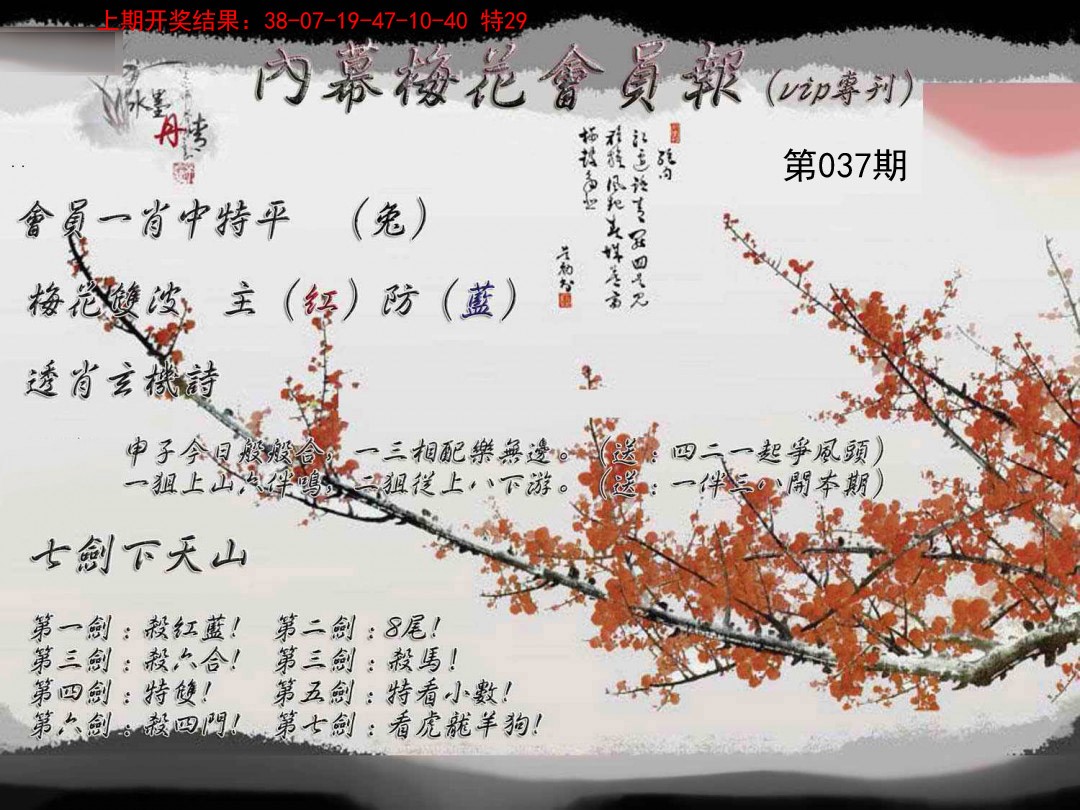 上期开奖结果：38-07-19-47-10-40 特29
內幕梅花會員報（vip專刊）
水墨丹青
第037期
會員一肖中特平 （兔）
梅花雙波 主（紅）防（藍）
透肖玄機詩
申子今日般般合，一三相配樂無邊。（送：四二一起爭風頭）
一狙上山六伴鳴，二狙從上八下游。（送：一伴三八開本期）
七劍下天山
第一劍：殺紅藍！ 第二劍：8尾！
第三劍：殺六合！ 第三劍：殺馬！
第四劍：特雙！ 第五劍：特看小數！
第六劍：殺四門！ 第七劍：看虎龍羊狗！